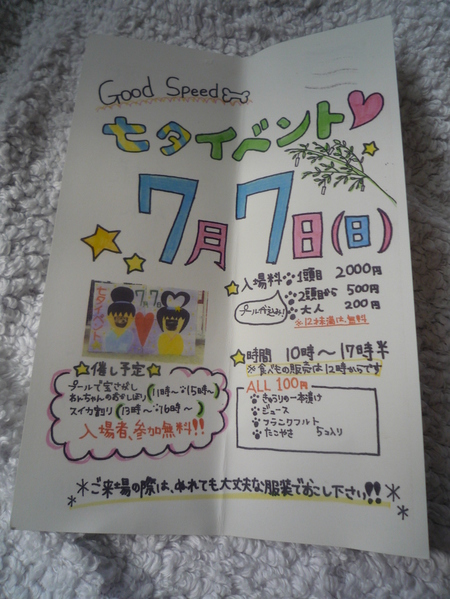 Good Speed
七夕イベント
7月7日(日)
入場料 1頭目 2000円
2頭目から 500円
プール代込み!
大人 200円
※12才満は無料
七夕イベント
7月7日
時間 10時〜17時半
※食べもの販売は12時からです
催し予定
プールで宝さがし
(11時〜 15時〜)
スイカ割り (13時〜 16時〜)
入場者、参加無料!!
ALL 100円
きゅうりの一本漬け
ジュース
フランクフルト
たこやき 5コ入り
*ご来場の際は、ぬれても大丈夫な服装でおこし下さい!!*